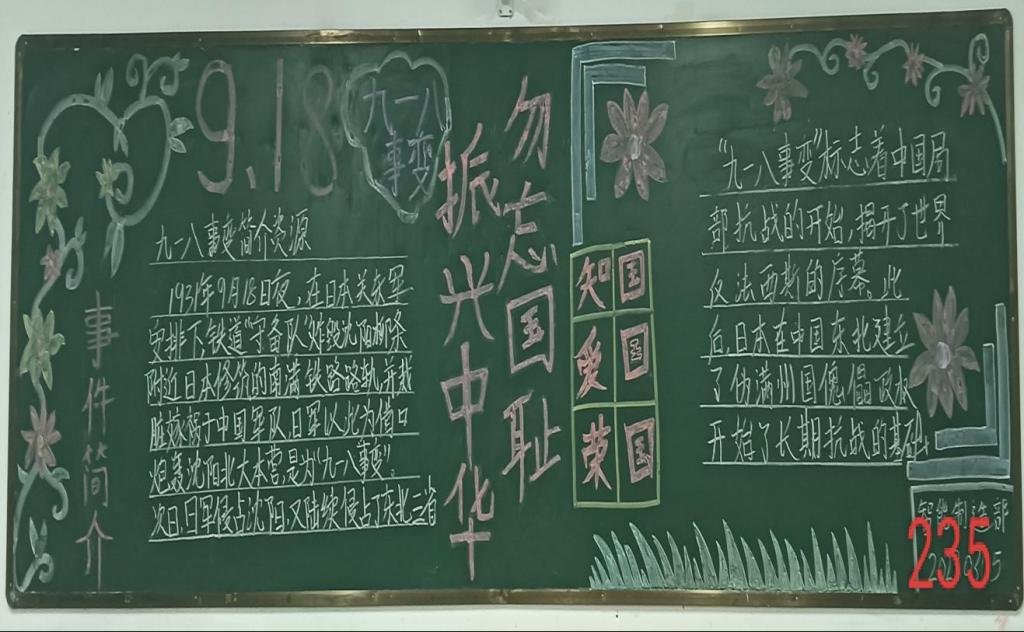 9.18
九一八
事变
事件简介
九一八事变简介资源
1931年9月18日夜,在日本关东军
安排下,铁道"守备队"炸毁沈阳柳条
附近日本修价的南满铁路路轨,并栽
赃嫁祸于中国军队日军以此为借口
炮轰沈阳北大本营,是为"九一八事变".
次日,日军侵占沈阳,又陆续侵占了东北三省
勿忘国耻
振兴中华
知国
爱国
荣国
"九一八事变"标志着中国局
部抗战的开始,揭开了世界
反法西斯的序幕.此
后,日本在中国东北建立
了伪满州国傀儡政权
开始了长期抗战的基础
智能制造部
235